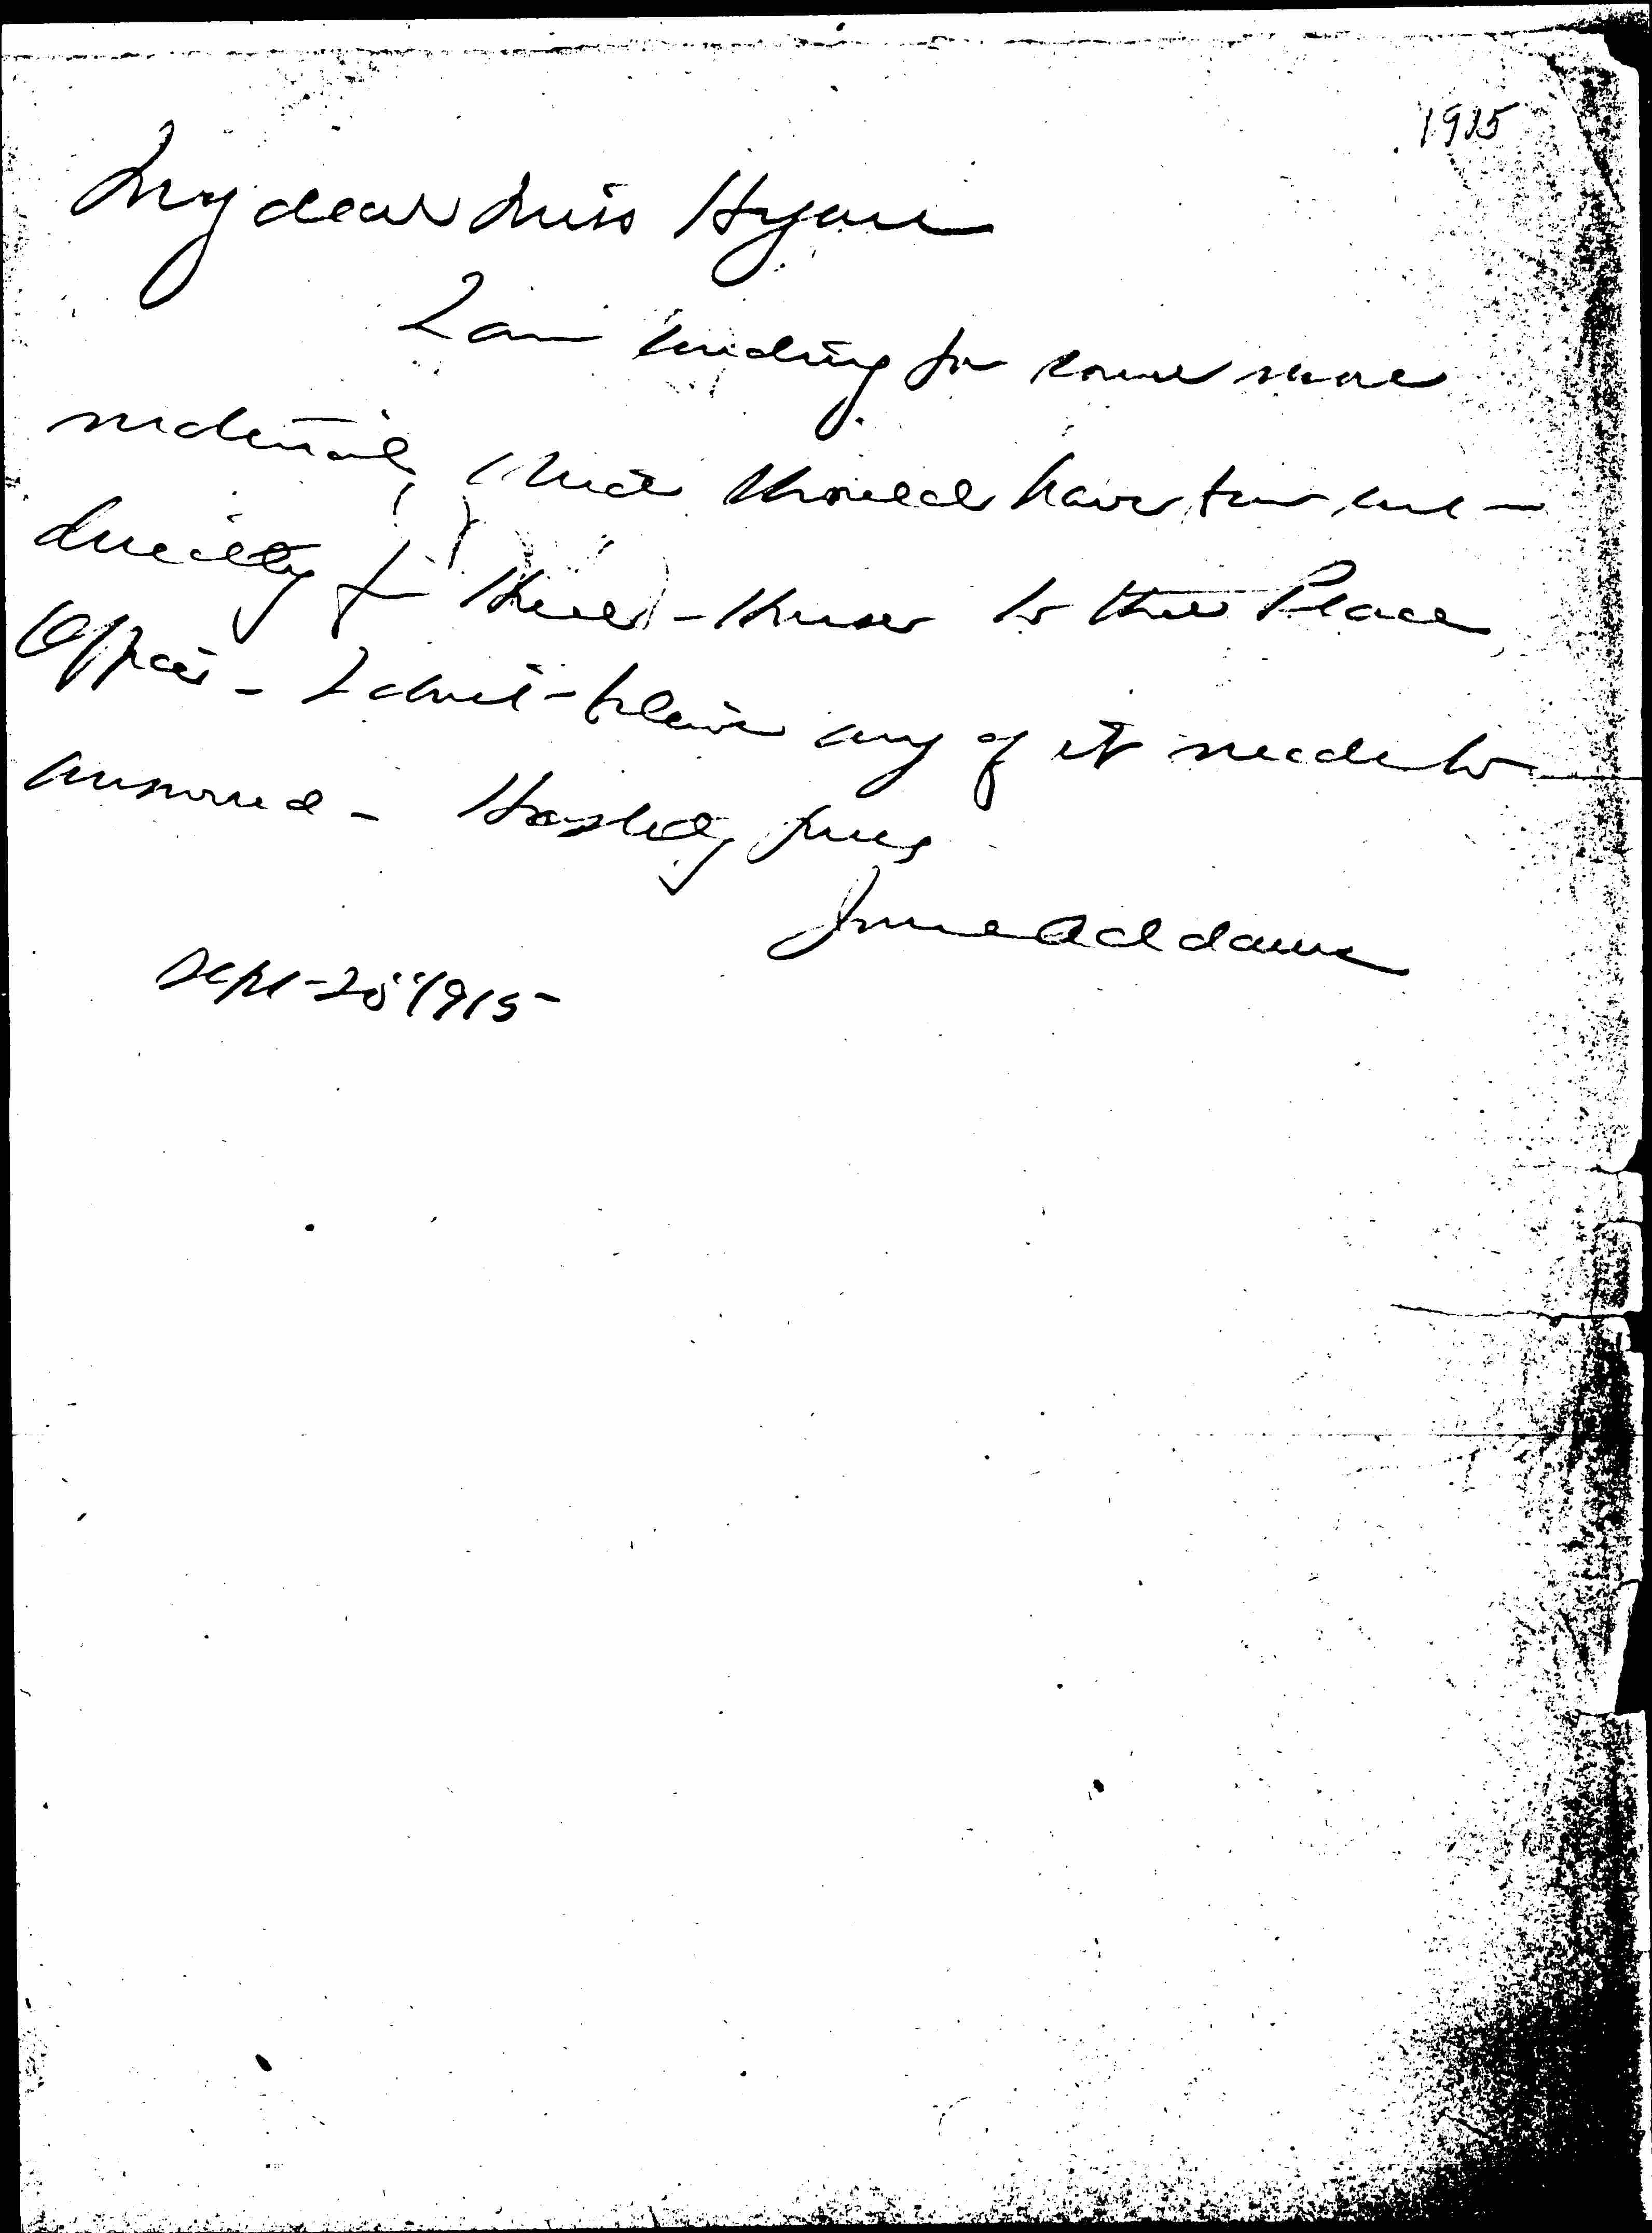 1915
My dear Miss Hyar
I am sending you some more
material, which should have been sent
directly from Hull-House to the Peace
Office - I don't believe any of it needs to
answered - Hastily yours
Jane Addams
Sept - 25" 1915 -